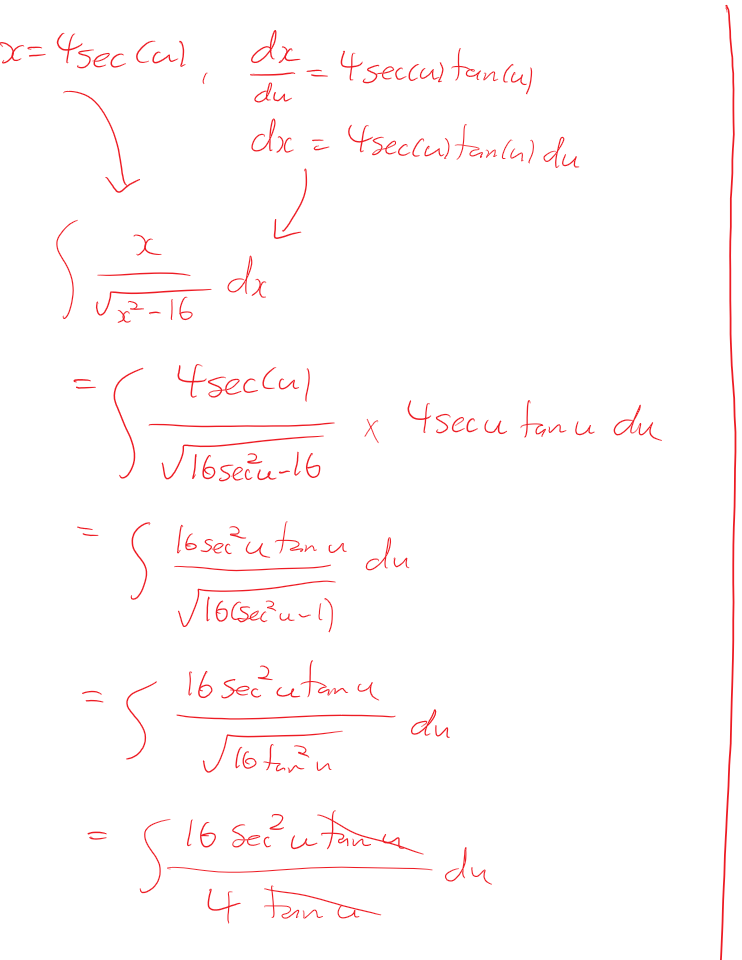 x = 4sec(u), dx/du = 4sec(u)tan(u)
dx = 4sec(u)tan(u) du
∫ x/√(x²-16) dx
= ∫ 4sec(u)/√(16sec²u-16) × 4secu tanu du
= ∫ 16sec²u tanu/√(16(sec²u-1)) du
= ∫ 16sec²u tanu/√(16tan²u) du
= ∫ 16sec²u tanu/4 tanu du